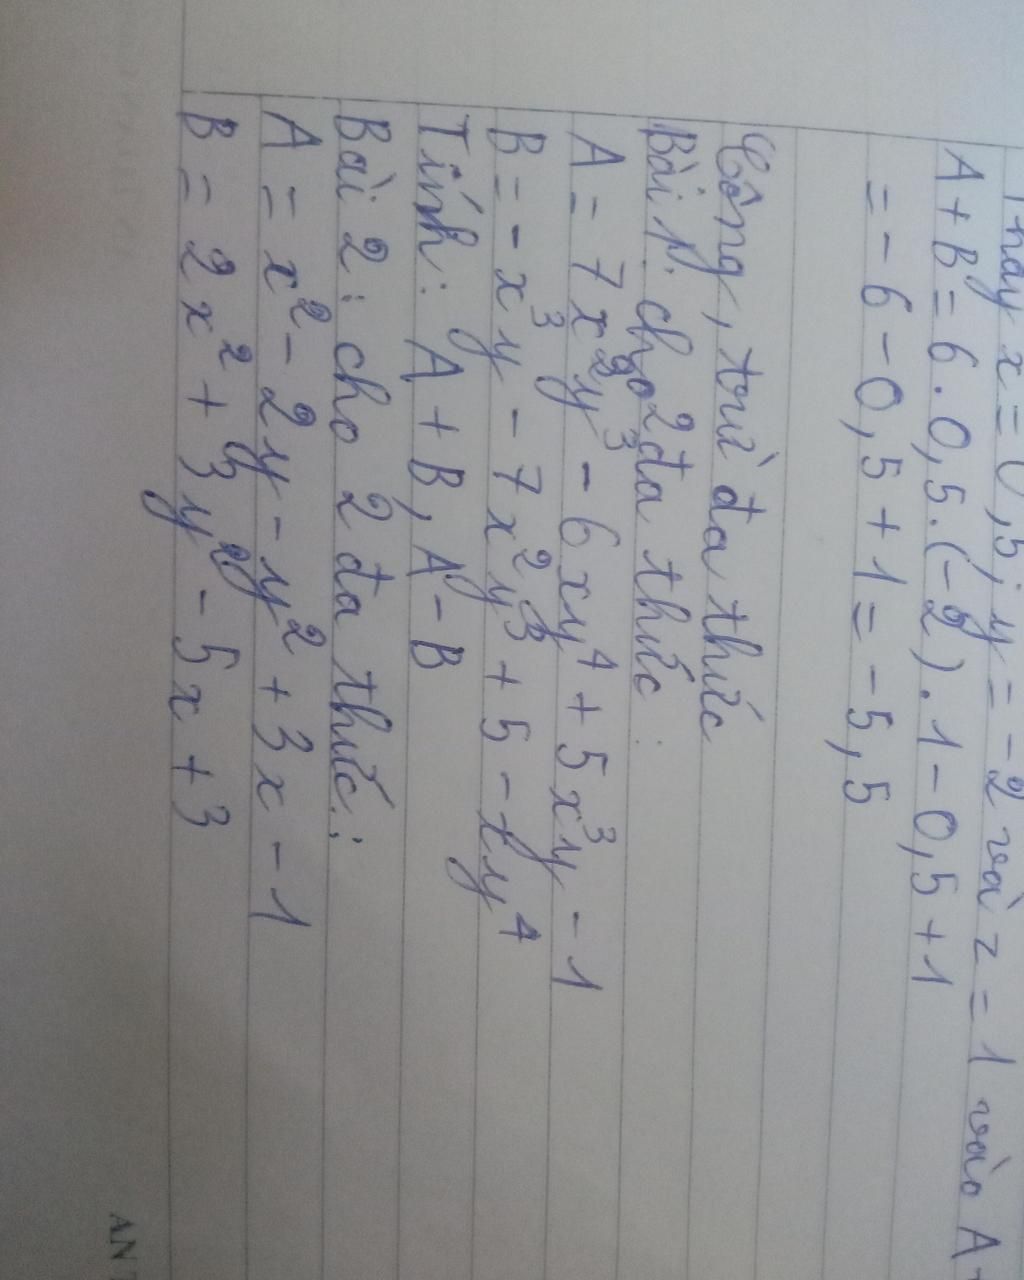 Thay x = 0,5; y = -2 và z = 1 vào A+
A + B = 6.0,5.(-2).1 - 0,5 + 1
= -6 - 0,5 + 1 = -5,5
Cộng, trừ đa thức
Bài 1: cho 2 đa thức:
A = 7x²y³ - 6xy⁴ + 5x³y - 1
B = -x³y - 7x²y³ + 5 - xy⁴
Tính: A + B, A - B
Bài 2: cho 2 đa thức:
A = x² - 2y - y² + 3x - 1
B = 2x² + 3y² - 5x + 3
AN